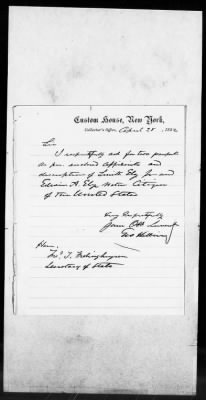 Custom House, New York,
Collector's Office, April 25, 1882
Sir
I respectfully ask for two passports
as per enclosed applicants and
description of Smith Ely Jr and
Edwin A. Ely Native Citizens
of the United States
Very Respectfully
Your Obt Servant
Hon.
T. Frelinghuysen
Secretary of State